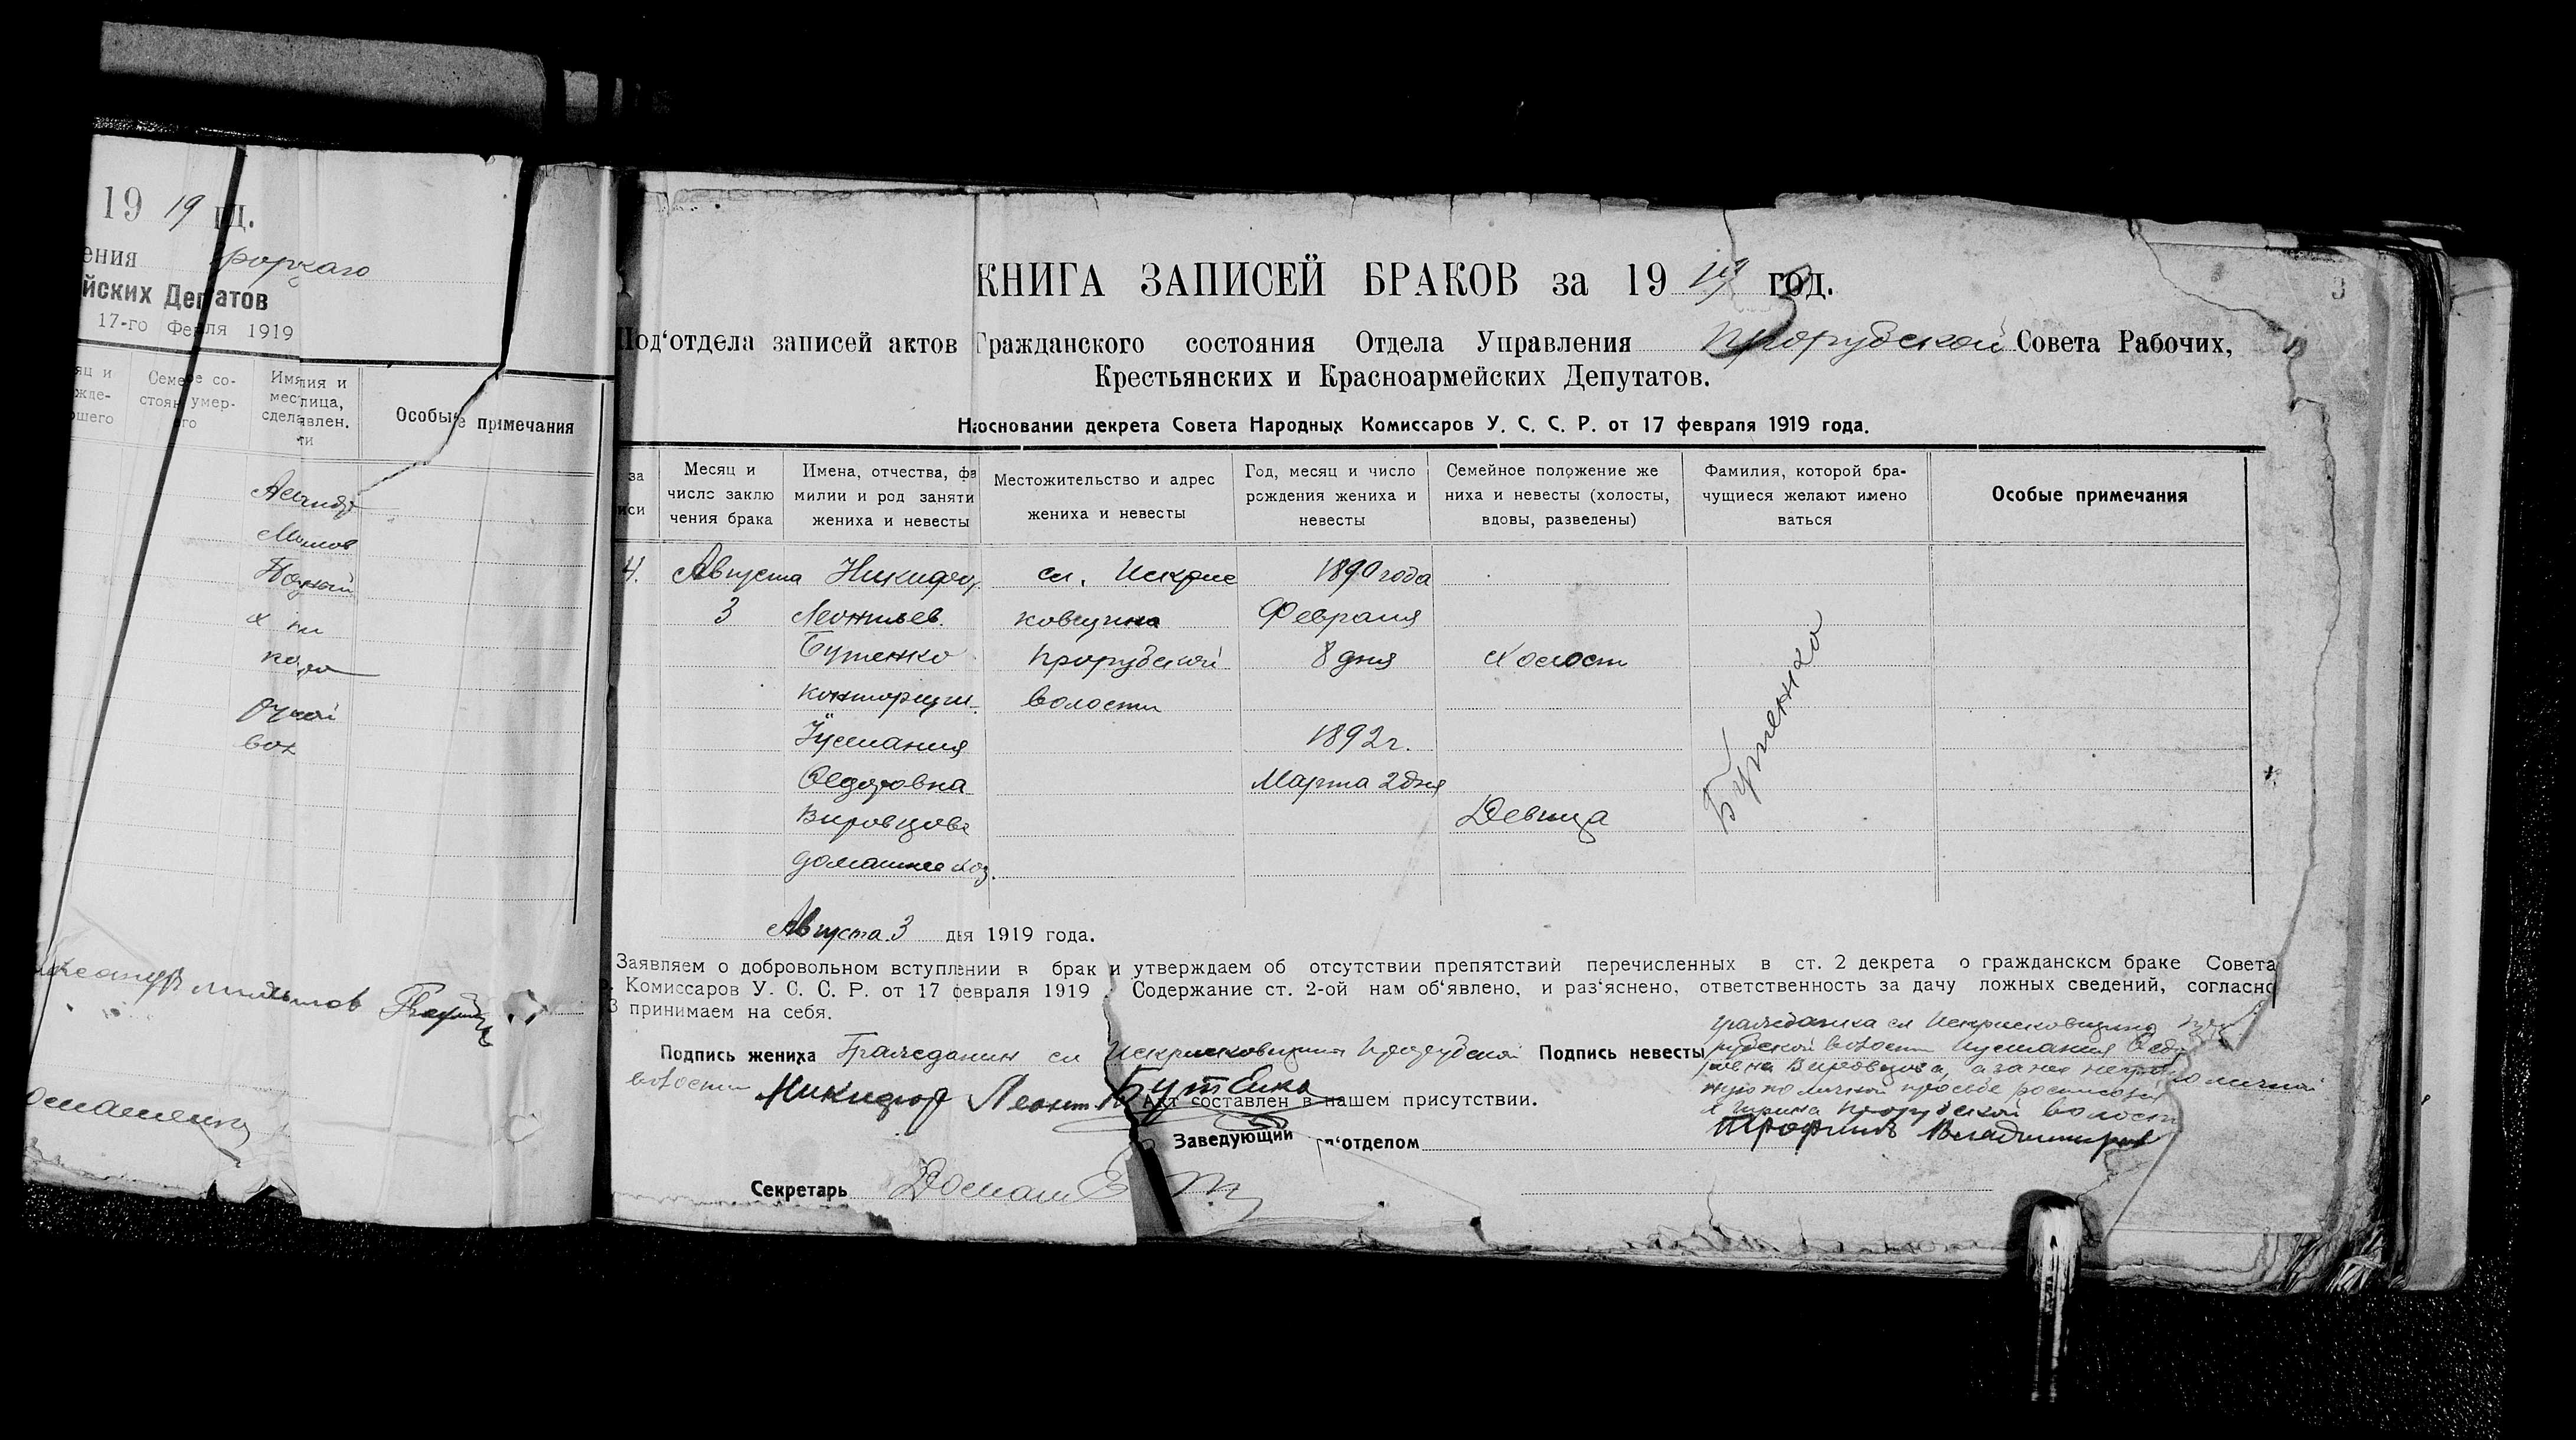 19 19
ения
йских Де атов
17-го Фе ля 1919
Особые примечания
КНИГА ЗАПИСЕЙ БРАКОВ за 1919 год.
Под‘отдела записей актов Гражданского состояния Отдела Управления Прорубской Совета Рабочих,
Крестьянских и Красноармейских Депутатов.
На основании декрета Совета Народных Комиссаров У. С. С. Р. от 17 февраля 1919 года.
за
иси
Месяц и
число заклю
чения брака
Имена, отчества, фа
милии и род заняти
жениха и невесты
Местожительство и адрес
жениха и невесты
Год, месяц и число
рождения жениха и
невесты
Семейное положение же
ниха и невесты (холосты,
вдовы, разведены)
Фамилия, которой бра-
чущиеся желают имено
ваться
Особые примечания
4. Августа Никифор. сл. Искрис 1890 года
3 Леонтьев. ковщина Февраля
Бутенко Прорубской 8 дня Холост
конторщик. волости
Іулиания 1892 г.
Федоровна Марта 2 дня
Вировцова Девица
домашнее хоз.
Бутенко
Августа 3 дня 1919 года.
Заявляем о добровольном вступлении в брак и утверждаем об отсутствии препятствий перечисленных в ст. 2 декрета о гражданском браке Совета
Комиссаров У. С. С. Р. от 17 февраля 1919 Содержание ст. 2-ой нам об‘явлено, и раз‘яснено, ответственность за дачу ложных сведений, согласно
3 принимаем на себя.
Подпись жениха Гражданин сл Искрисковщина Прорубской
волости Никифор Леонт Бутенко
Подпись невесты гражданка сл Искрисковщина
рубской волости Иулиания Федо
ровна Вировцова, а за нее неграмотную по личной просьбе росписался
Прорубской волости
Трофим Владимиров
Акт составлен в нашем присутствии.
Заведующий п‘отделом
Секретарь